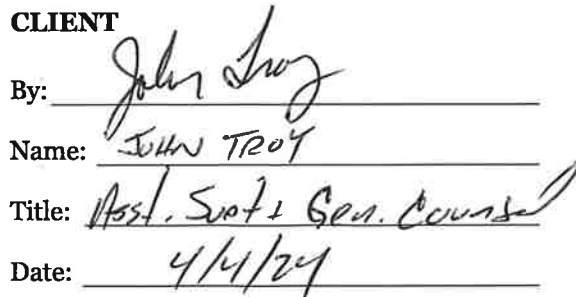 CLIENT
By: John Troy
Name: JOHN TROY
Title: Asst. Supt & Gen. Counsel
Date: 4/4/24